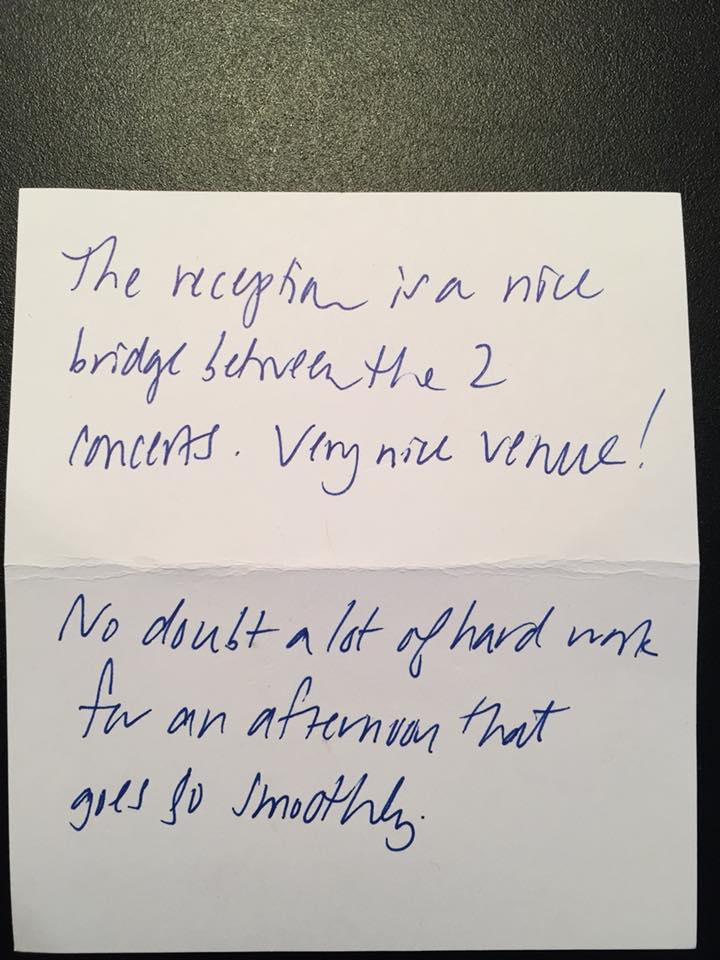 The reception is a nice
bridge between the 2
concerts. Very nice venue!
No doubt a lot of hard work
for an afternoon that
goes so smoothly.